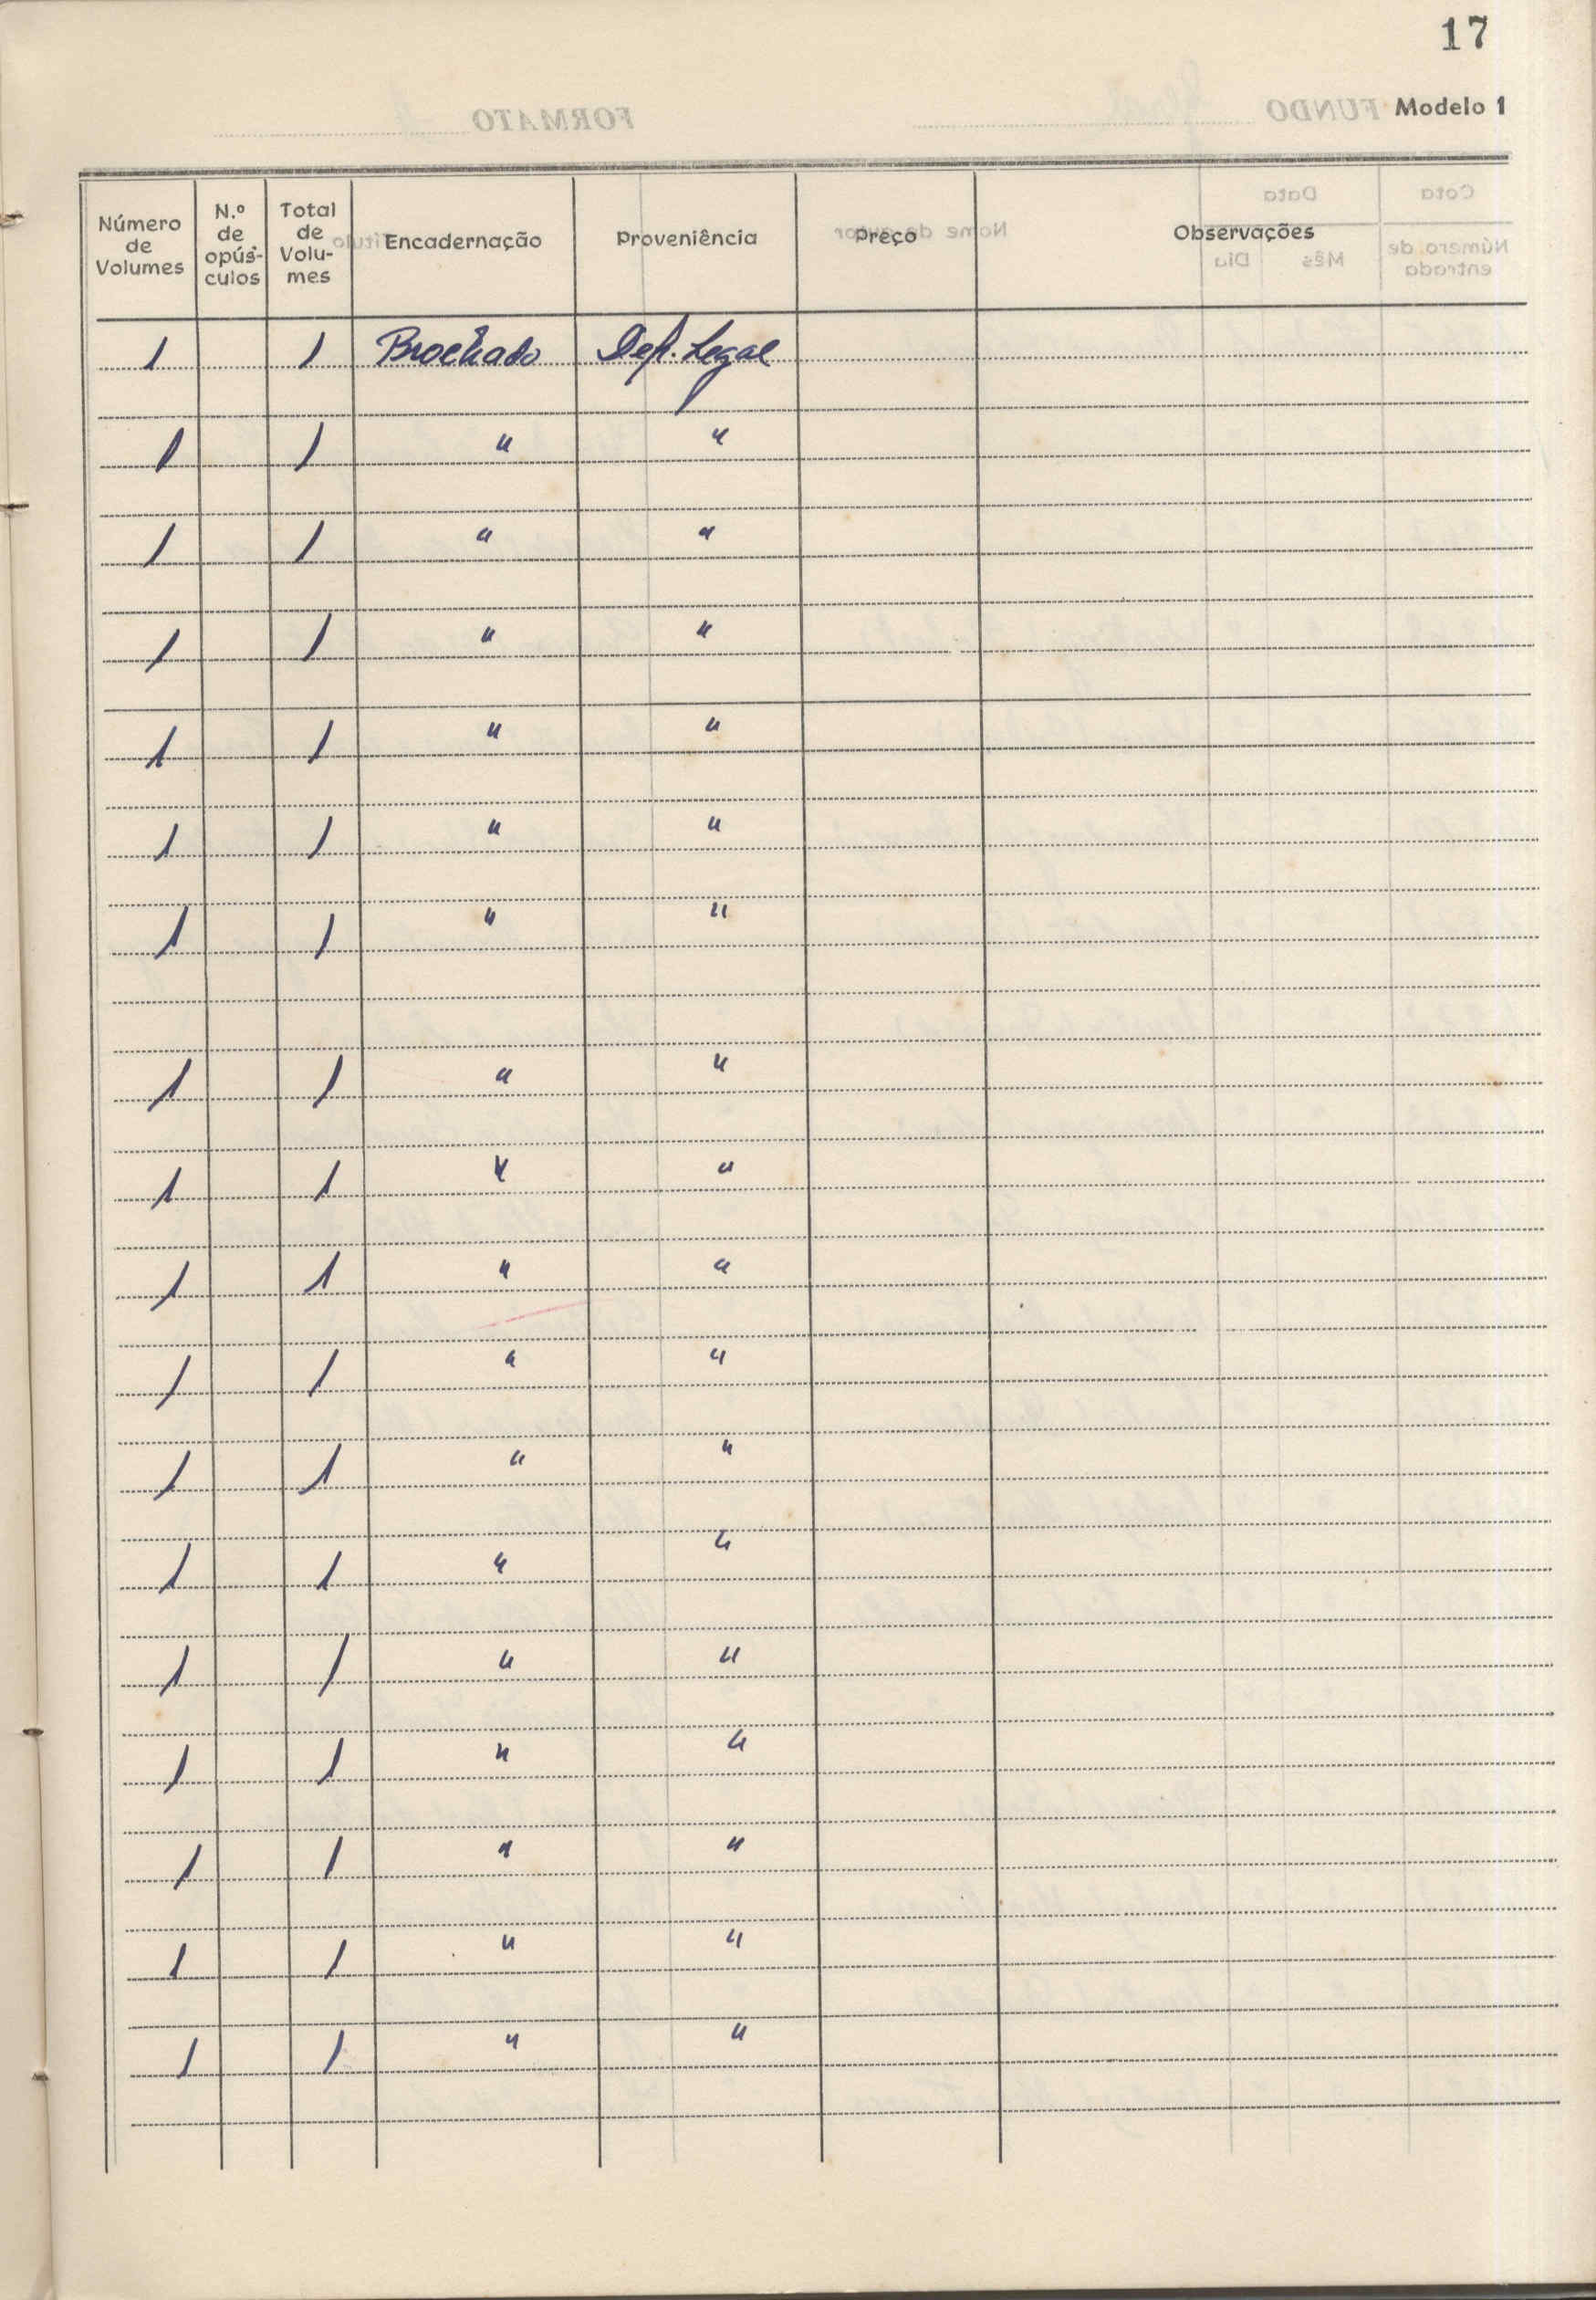 17
Modelo 1
Número de Volumes N.º de opús-culos Total de Volu-mes Encadernação Proveniência Preço Observações
1 1 Brochado Dep. Legal
1 1 " "
1 1 " "
1 1 " "
1 1 " "
1 1 " "
1 1 " "
1 1 " "
1 1 " "
1 1 " "
1 1 " "
1 1 " "
1 1 " "
1 1 " "
1 1 " "
1 1 " "
1 1 " "
1 1 " "